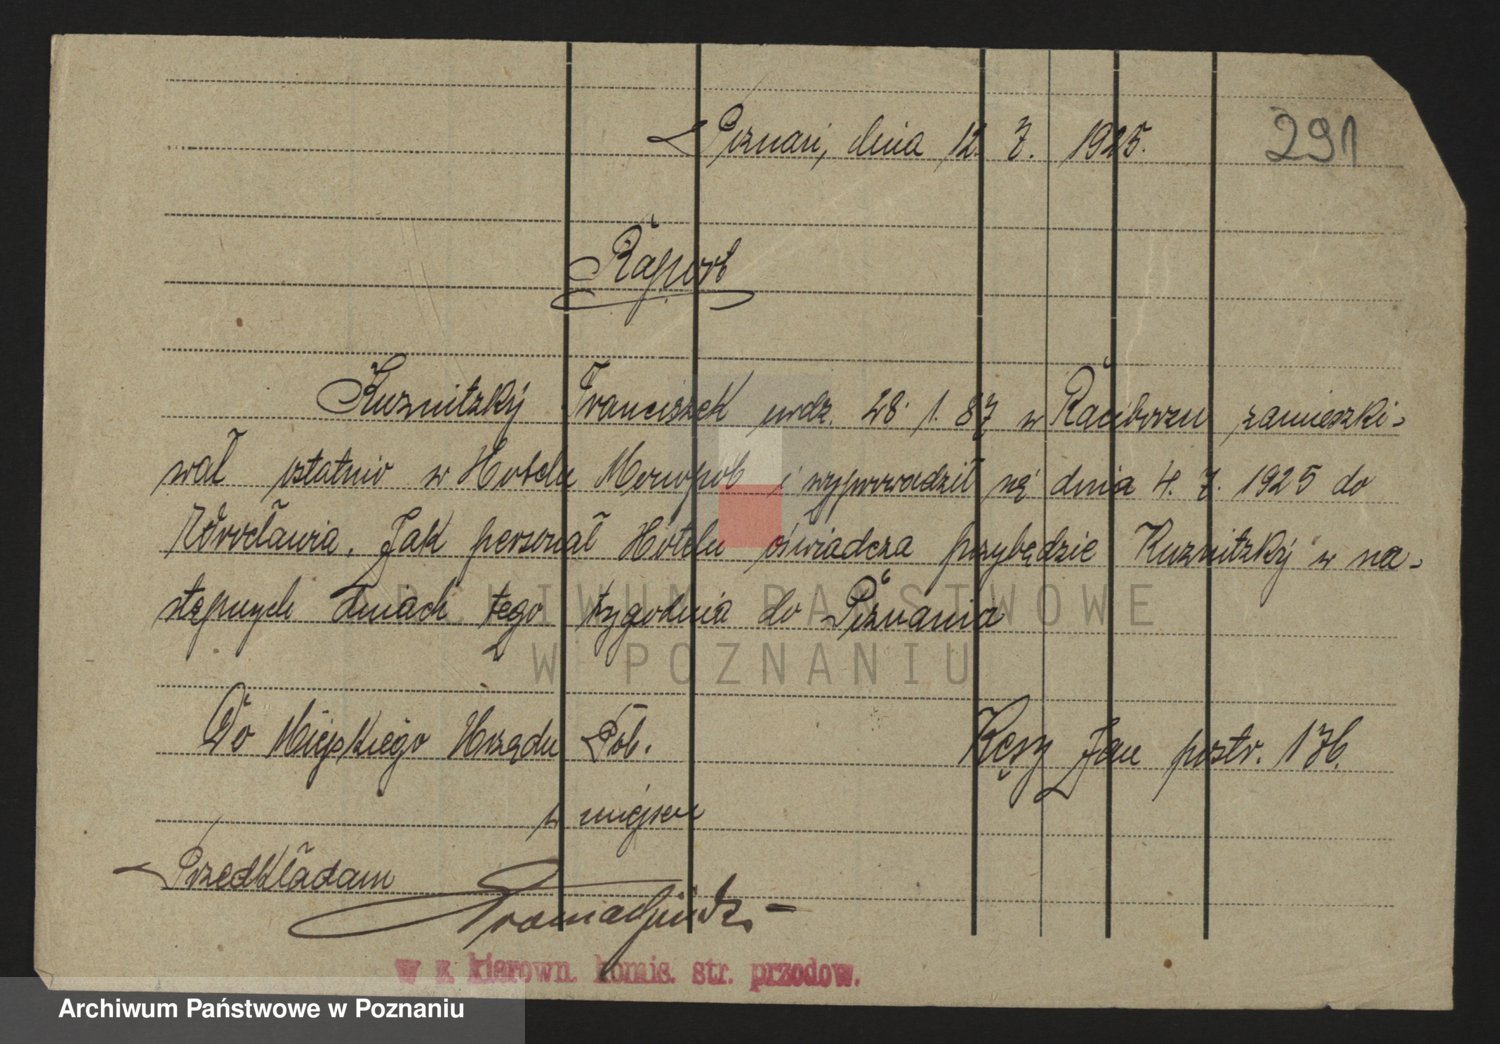 Poznań, dnia 12. 7. 1925.
291
Raport
Kuznitzky Franciszek urdz. 28. 1. 87 w Raciborzu zamieszki-
wał ostatnio w Hotelu Monopol i wyprowadził się dnia 4. 7. 1925 do
Wrocławia. Jak personał Hotelu oświadcza przybędzie Kuznitzky w na-
stępnych dniach tego tygodnia do Poznania
Do Miejskiego Urzędu Pob.
Kęsy Jan postr. 176.
w miejscu
Przedkładam
w z. kierown. komis. str. przodow.
ARCHIWUM PAŃSTWOWE
W POZNANIU
Archiwum Państwowe w Poznaniu